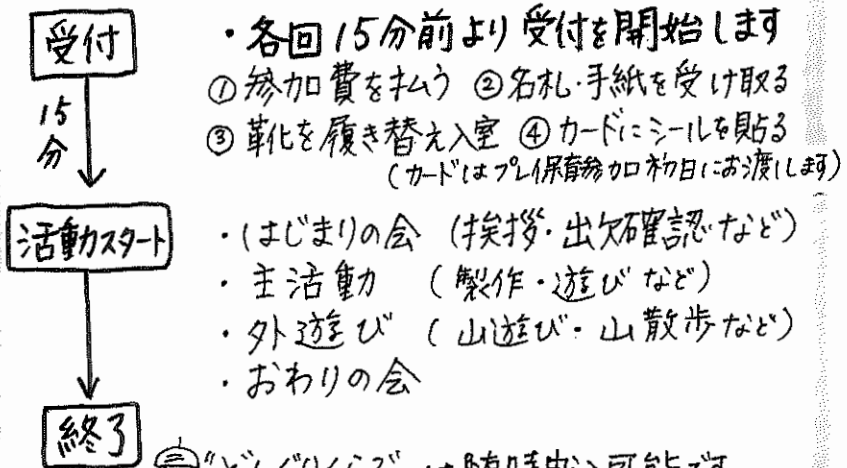 受付
・各回15分前より受付を開始します
①参加費を払う ②名札・手紙を受け取る
15分
③靴を履き替え入室 ④カードにシールを貼る
(カードはプレイ保育参加初日にお渡しします)
活動スタート
・はじまりの会 (挨拶・出欠確認など)
・主活動 (製作・遊びなど)
・外遊び (山遊び・山散歩など)
・おわりの会
終了